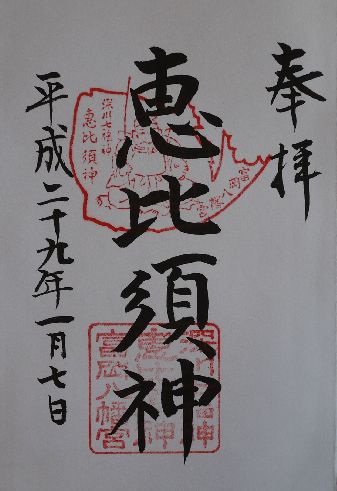 奉拝
恵比須神
平成二十九年一月七日
深川七福神
恵比須神
富岡八幡宮
深川七福神
恵比須神
富岡八幡宮